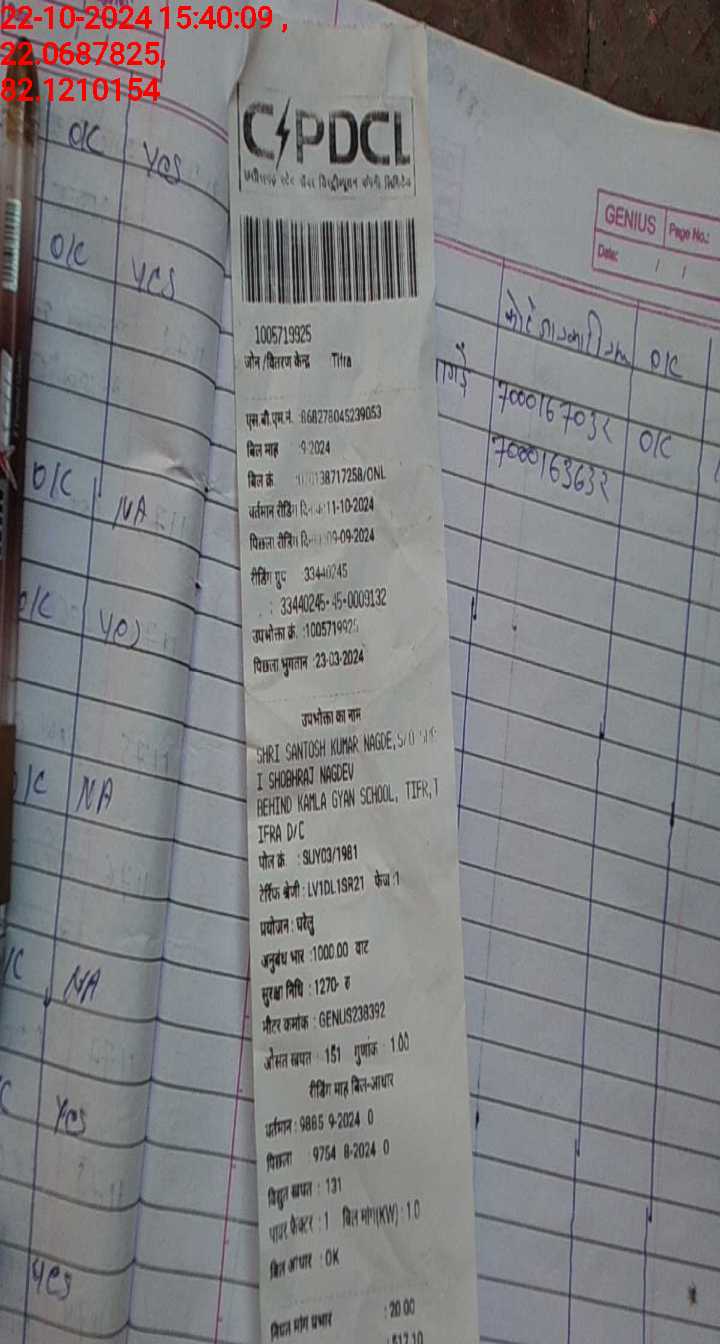 22-10-2024 15:40:09 ,
22.0687825,
82.1210154
O/C YES
O/C YES
O/C NA
O/C YES
O/C NA
NA
Yes
Yes
CSPDCL
छत्तीसगढ़ स्टेट पॉवर डिस्ट्रीब्यूशन कंपनी लिमिटेड
1005719925
जोन /वितरण केन्द्र Tifra
एस.बी.एम.नं. :868278045239053
बिल माह :9-2024
बिल क्रं. 138717258/ONL
वर्तमान रीडिंग :11-10-2024
पिछला रीडिंग :09-09-2024
रीडिंग ग्रुप 33440245
: 33440245-45-0009132
उपभोक्ता क्रं. :1005719925
पिछला भुगतान :23-03-2024
उपभोक्ता का नाम
SHRI SANTOSH KUMAR NAGDE,S/O
I SHOBHRAJ NAGDEV
BEHIND KAMLA GYAN SCHOOL, TIFR,T
IFRA D/C
पोल क्रं :SUY03/1981
टेरिफ श्रेणी :LV1DL1SR21 फेज :1
प्रयोजन : घरेलु
अनुबंध भार :1000.00 वाट
सुरक्षा निधि : 1270- रु
मीटर क्रमांक : GENUS238392
औसत खपत : 151 गुणांक : 1.00
रीडिंग माह बिल-आधार
वर्तमान : 9885 9-2024 0
पिछला 9754 8-2024 0
विद्युत खपत : 131
पावर फ़ेक्टर : 1 बिल मांग(KW) : 1.0
बिल आधार : OK
नियत मांग प्रभार : 20.00
: 512.10
GENIUS Page No.:
Date: / /
O/C
7000167032 O/C
7000163632